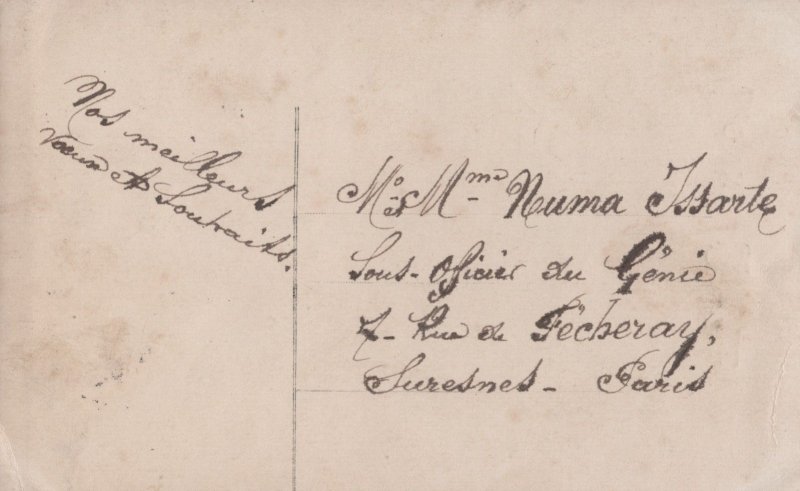 Nos meilleurs
vœux et Souhaits.
Mr et Mme Numa Issarte
Sous-Officier du Génie
7- Rue de Fécheray,
Suresnes - Paris